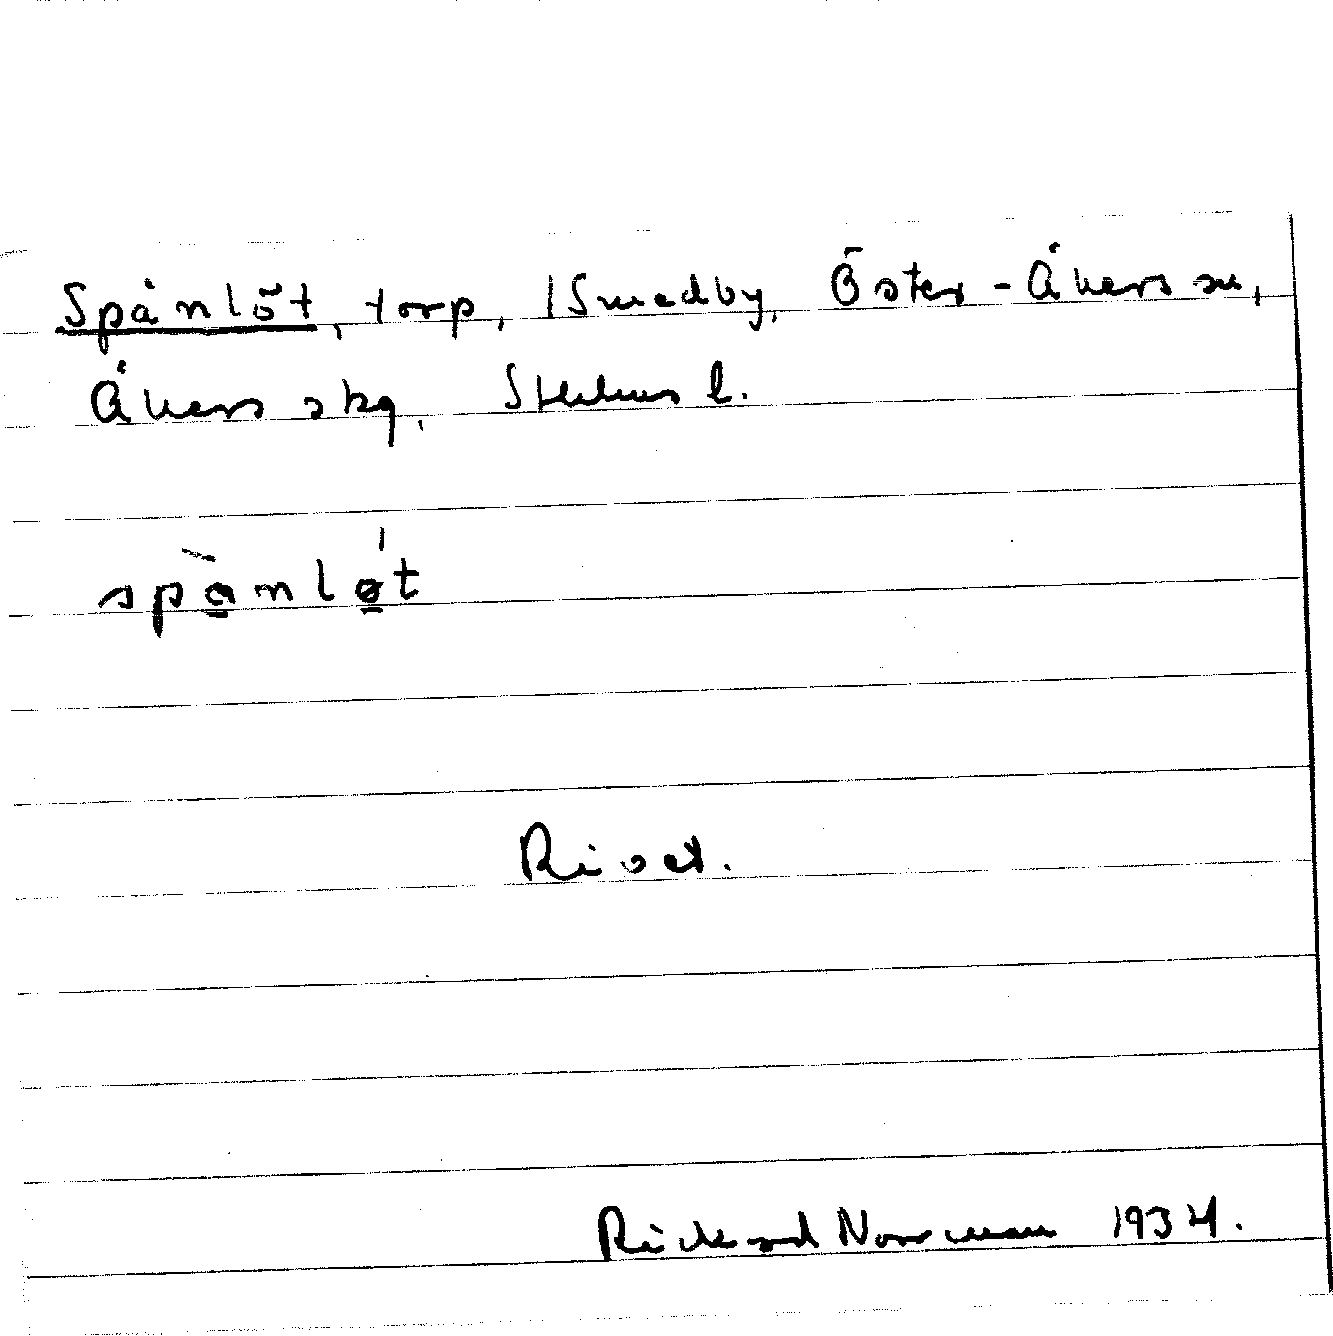 Spånlöt, torp, 1 Smedby, Öster-Åkers sn,
Åkers skg, Sthlms l.
spånlø̱t
Rivet.
Rickard Norrman 1934.